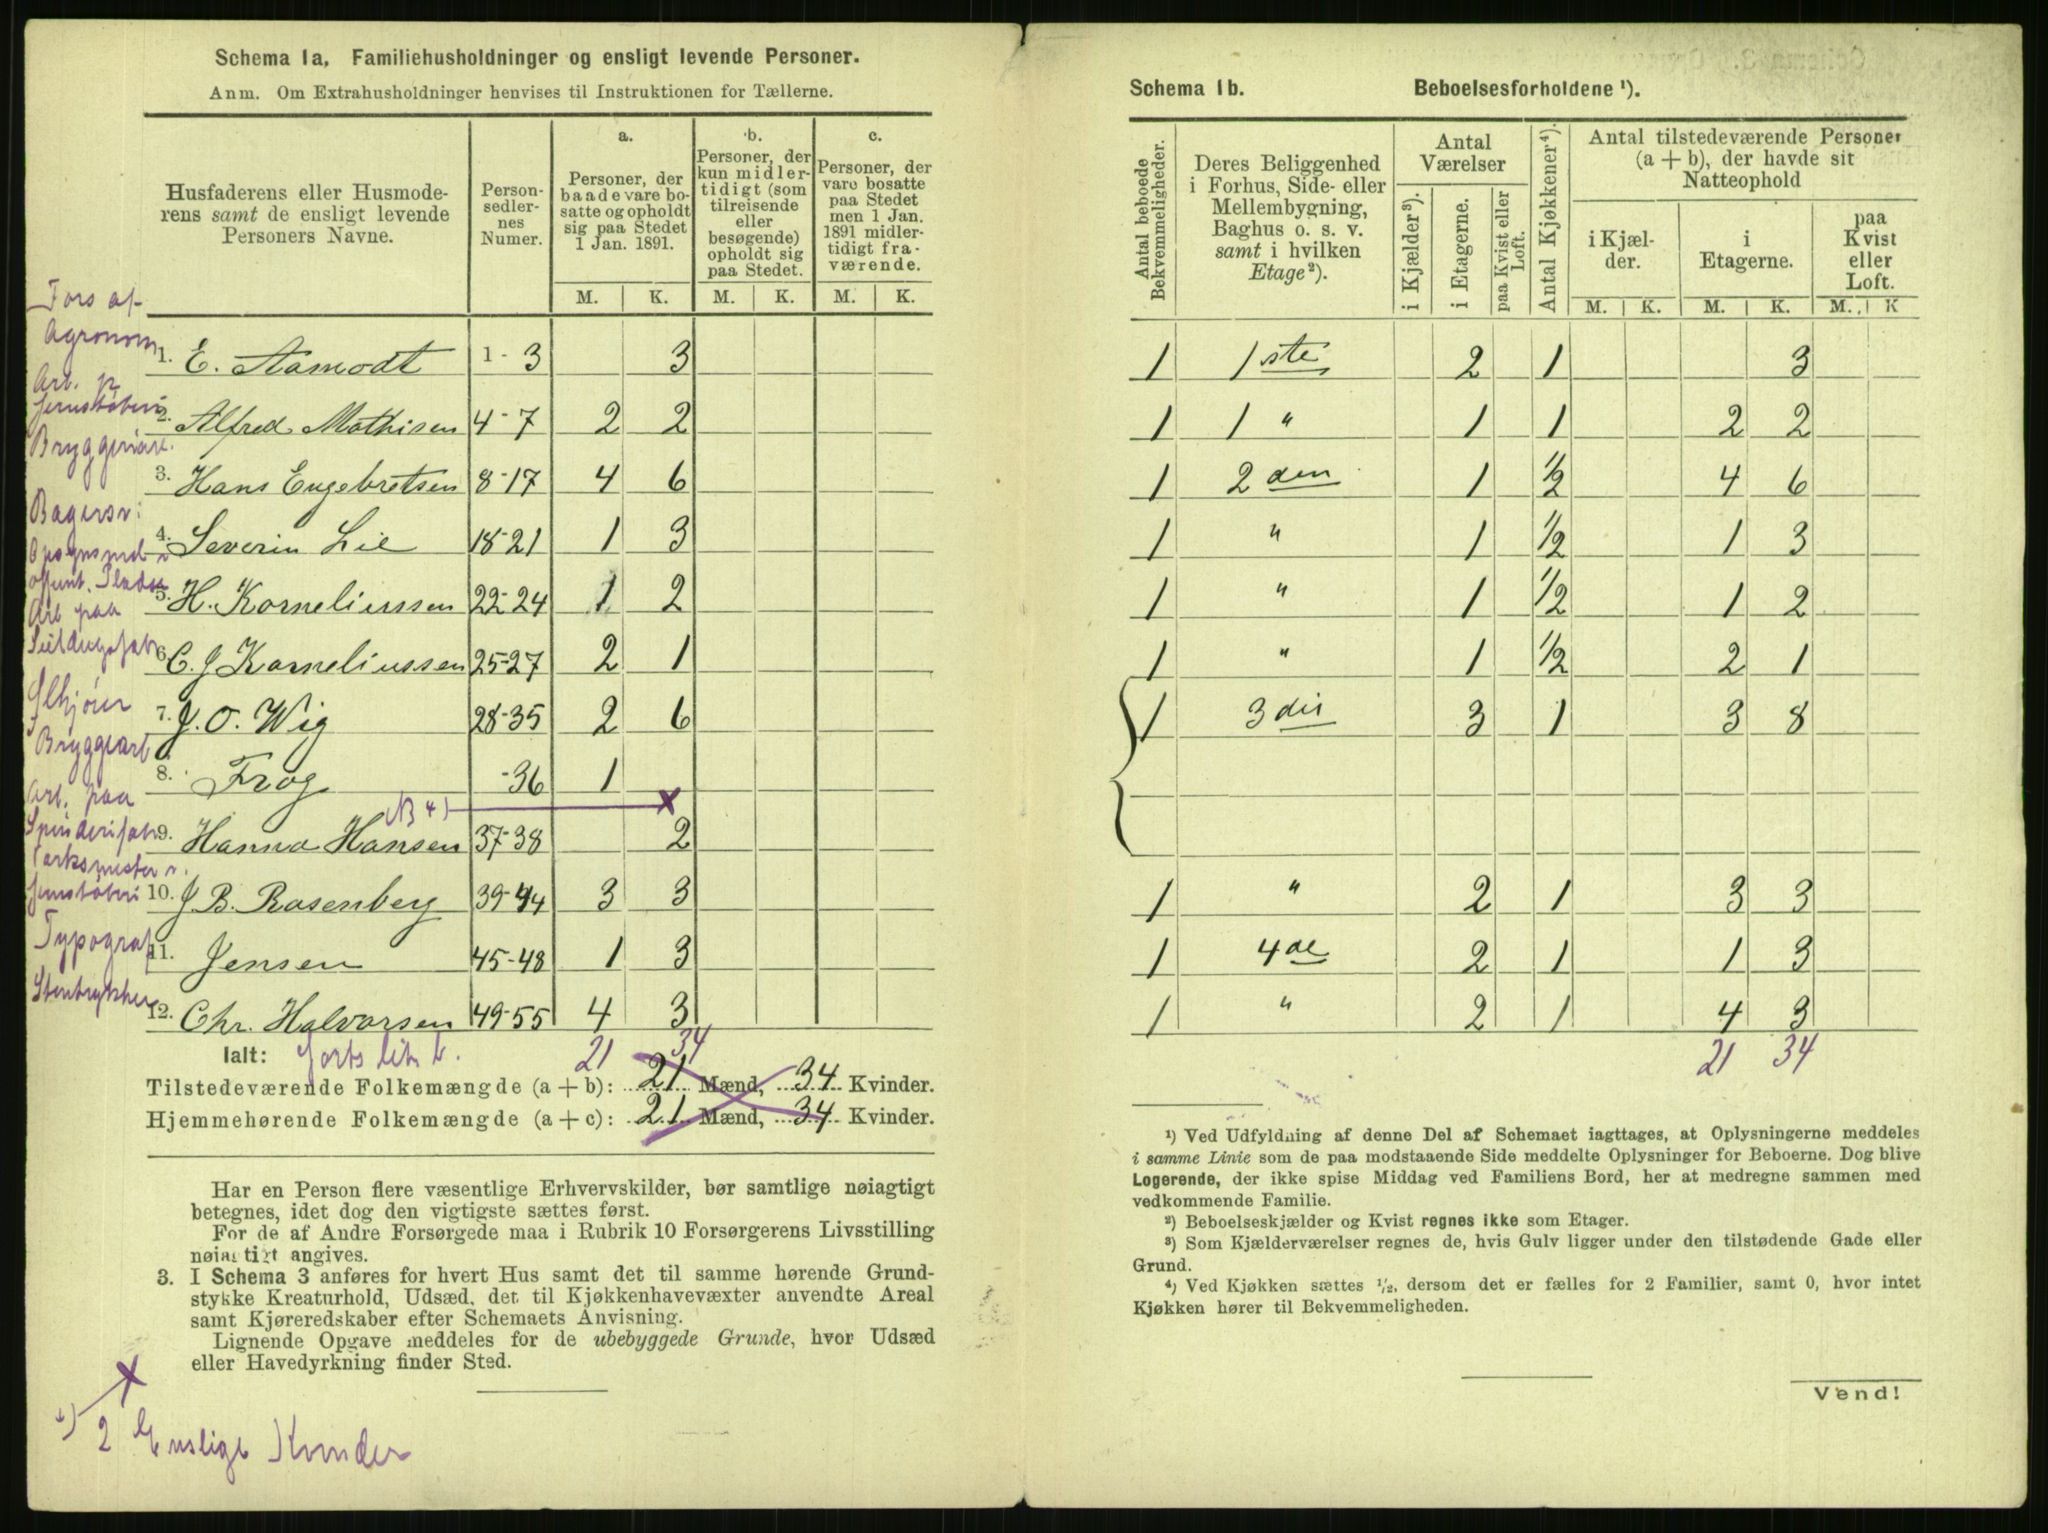 Schema 1a. Familiehusholdninger og ensligt levende Personer.
Anm. Om Extrahusholdninger henvises til Instruktionen for Tællerne.
Husfaderens eller Husmoderens samt de ensligt levende Personers Navne.
Personsedlernes Numer.
a.
Personer, der baade vare bosatte og opholdt sig paa Stedet 1 Jan. 1891.
b.
Personer, der kun midlertidigt (som tilreisende eller besøgende) opholdt sig paa Stedet.
c.
Personer, der vare bosatte paa Stedet men 1 Jan. 1891 midlertidigt fraværende.
M. K. M. K. M. K.
Fors af
Agronom
1. E. Aamodt 1-3 3
Arb. p
Jernstøberi
2. Alfred Mathisen 4-7 2 2
Bryggeriarb.
3. Hans Engebretsen 8-17 4 6
Bagersv:
4. Severin Lie 18-21 1 3
Opsynsmd
offent.
5. H. Korneliussen 22-24 1 2
Arb paa
Seildugsfabr
6. C. J Korneliussen 25-27 2 1
7. J. O. Wig 28-35 2 6
Bryggearb
8. Frog -36 1
Arb. paa
Spinderifabr
9. Hanna Hansen 37-38 2
Jernstøberi
10. J B. Rosenberg 39-44 3 3
Typograf
11. Jensen 45-48 1 3
12. Chr. Halvorsen 49-55 4 3
Ialt: 21 34
Tilstedeværende Folkemængde (a + b): 21 Mænd, 34 Kvinder.
Hjemmehørende Folkemængde (a + c): 21 Mænd, 34 Kvinder.
Har en Person flere væsentlige Erhvervskilder, bør samtlige nøiagtigt
betegnes, idet dog den vigtigste sættes først.
For de af Andre Forsørgede maa i Rubrik 10 Forsørgerens Livsstilling
nøiagtigt angives.
3. I Schema 3 anføres for hvert Hus samt det til samme hørende Grund-
stykke Kreaturhold, Udsæd, det til Kjøkkenhavevæxter anvendte Areal
samt Kjøreredskaber efter Schemaets Anvisning.
Lignende Opgave meddeles for de ubebyggede Grunde, hvor Udsæd
eller Havedyrkning finder Sted.
2 Enslige Kvinder
Schema 1b. Beboelsesforholdene ¹).
Antal beboede Bekvemmeligheder.
Deres Beliggenhed i Forhus, Side- eller Mellembygning, Baghus o. s. v. samt i hvilken Etage ²).
Antal Værelser
i Kjælder ³).
i Etagerne.
paa Kvist eller Loft.
Antal Kjøkkener ⁴).
Antal tilstedeværende Personer (a + b), der havde sit Natteophold
i Kjælder.
i Etagerne.
paa Kvist eller Loft.
M. K. M. K. M. K
1 1 ste 2 1 3
1 1 " 1 1 2 2
1 2 den 1 1/2 4 6
1 " 1 1/2 1 3
1 " 1 1/2 1 2
1 " 1 1/2 2 1
1 3 die 3 1 3 8
1 " 2 1 3 3
1 4 de 2 1 1 3
1 " 2 1 4 3
21 34
¹) Ved Udfyldning af denne Del af Schemaet iagttages, at Oplysningerne meddeles
i samme Linie som de paa modstaaende Side meddelte Oplysninger for Beboerne. Dog blive
Logerende, der ikke spise Middag ved Familiens Bord, her at medregne sammen med
vedkommende Familie.
²) Beboelseskjælder og Kvist regnes ikke som Etager.
³) Som Kjælderværelser regnes de, hvis Gulv ligger under den tilstødende Gade eller
Grund.
⁴) Ved Kjøkken sættes ½, dersom det er fælles for 2 Familier, samt 0, hvor intet
Kjøkken hører til Bekvemmeligheden.
Vend!